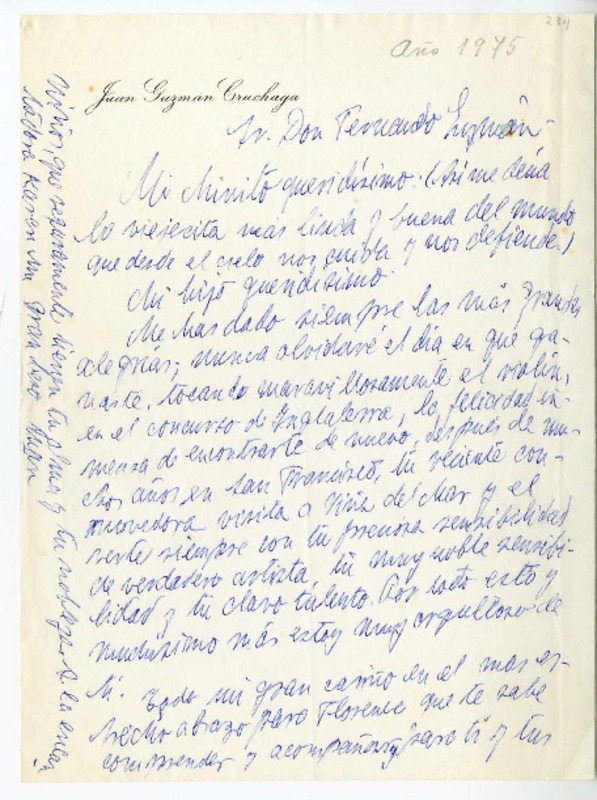 234
Año 1975
Juan Guzmán Cruchaga
Sr. Don Fernando Guzmán-
Mi Minito queridísimo: (Así me decía
la viejecita más linda y buena del mundo
que desde el cielo nos cuida y nos defiende)
Mi hijo queridísimo:
Me has dado siempre las más grandes
alegrías; nunca olvidaré el día en que ga-
naste, tocando maravillosamente el violín,
en el concurso de Inglaterra, la felicidad in-
mensa de encontrarte de nuevo, después de mu-
chos años en San Francisco, tu reciente con-
movedora visita a Viña del Mar y el
verte siempre con tu preciosa sensibilidad
de verdadero artista, tu muy noble sensibi-
lidad y tu claro talento. Por todo esto y
muchísimo más estoy muy orgulloso de
ti. Todo mi gran cariño en el mas es-
trecho abrazo para Florence que te sabe
comprender y acompañar y para ti y tus
niños, que seguramente tienen tu alma y tu nobleza. A la encan-
tadora Karen un gran beso Juan